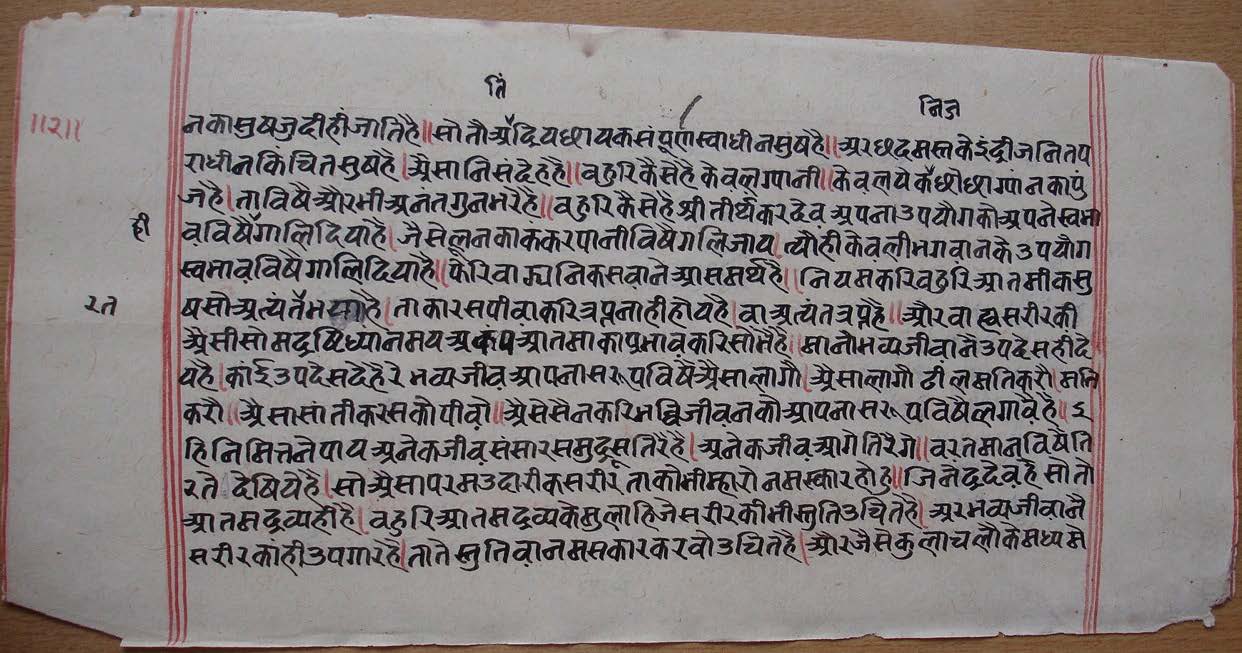 तिं
निज
॥२॥
नकासुषजुदीहीजातिहै॥सोतौअैदियछायकसंपूर्णस्वाधीनसुषहै॥अरछदमस्तकेइंद्रीजनितप
राधीनकिंचितसुषहै।अैसानिसंदेहहै॥बहुरिकैसेहैकेवलग्यानी॥केवलयेकैछीछाग्यांनकापुं
जहै।ताविषैऔरभीअनंतगुनभरेहै॥बहुरिकैसेहैश्रीतीर्थंकरदेवअपनाउपयौगकोअपनेस्वभा
ही
वविषैंगालिदियाहै।जैसेलूनकाकंकरपानीविषैगलिजाय।त्यौहीकेवलीभगवानकेउपयौग
स्वभावविषैगालिदियाहै॥फेरिवाझनिकसवानेआसमर्थहै॥नियमकरिबहुरिआतमीकसु
रत
षसोअत्यंतैभयाहै।ताकारसपीवाकरित्रप्तनाहीहोयहै।वाअत्यंतत्रप्तहै॥औरवाह्वसरीरकी
अैसीसोमद्रषिध्यानमयअकंपआतमाकाप्रभावकरिसोभैहै॥मानोभव्यजीवानैउपदेसहीदे
यहै।कांईउपदेसदेहैरेभव्यजीवआपनासरूपविषैअैसालागौ।अैसालागौढीलमतिकरौ।मति
करौ॥अैसासांतीकरसकौपीवो॥अैसेसैनकरिभव्विजीवनकौआपनासरूपविषैलगावैहै॥इ
हिनिमित्तनेपायअनेकजीवसंसारसमुद्रसूतिरेहै।अनेकजीवआगेतिरैगे॥वरतमानविषैति
रते देषियेहै।सोअैसापरमउदारीकसरीर ताकौभीम्हारोनमस्कारहोहु॥जिनेंद्रदेवहै सोतो
आतमद्रव्यहीहै।बहुरिआतमद्रव्यकेमुलाहिजेसरीरकीभीस्तुतिउचितहै।अरभव्यजीवानै
सरीरकांहीउपगारहै।तातेस्तुतिवानमसकारकरवोउचितहै।औरजैसेकुलाचलौकेमध्यमे